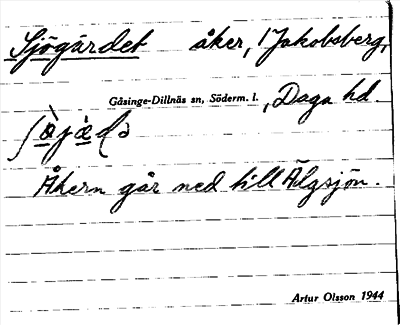 Sjögärdet åker, Jakobsberg,
Gåsinge-Dillnäs sn, Söderm. l., Daga hd.
Åkern går ned till Älgsjön.
Artur Olsson 1944